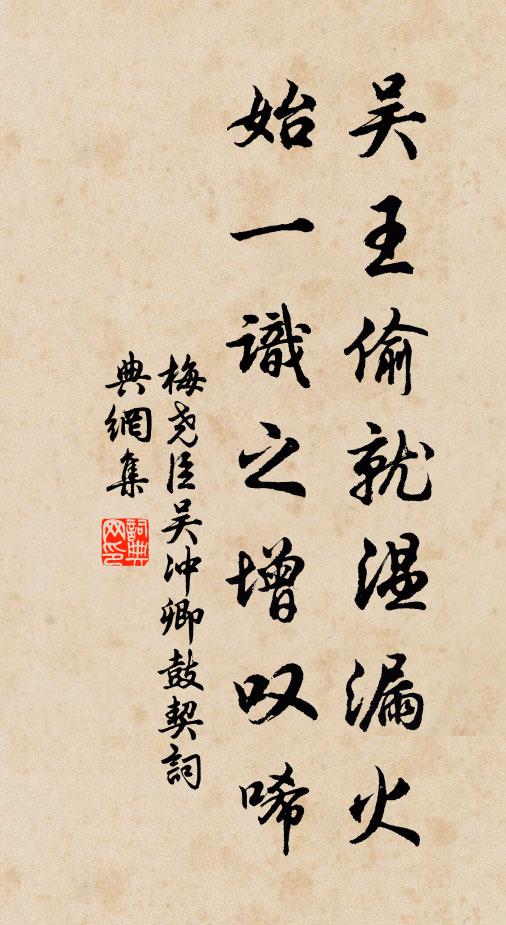 吴王偷就温漏火
始一識之增叹唏
梅尧臣吴冲卿鼓契詞
典網集
詞典
网印